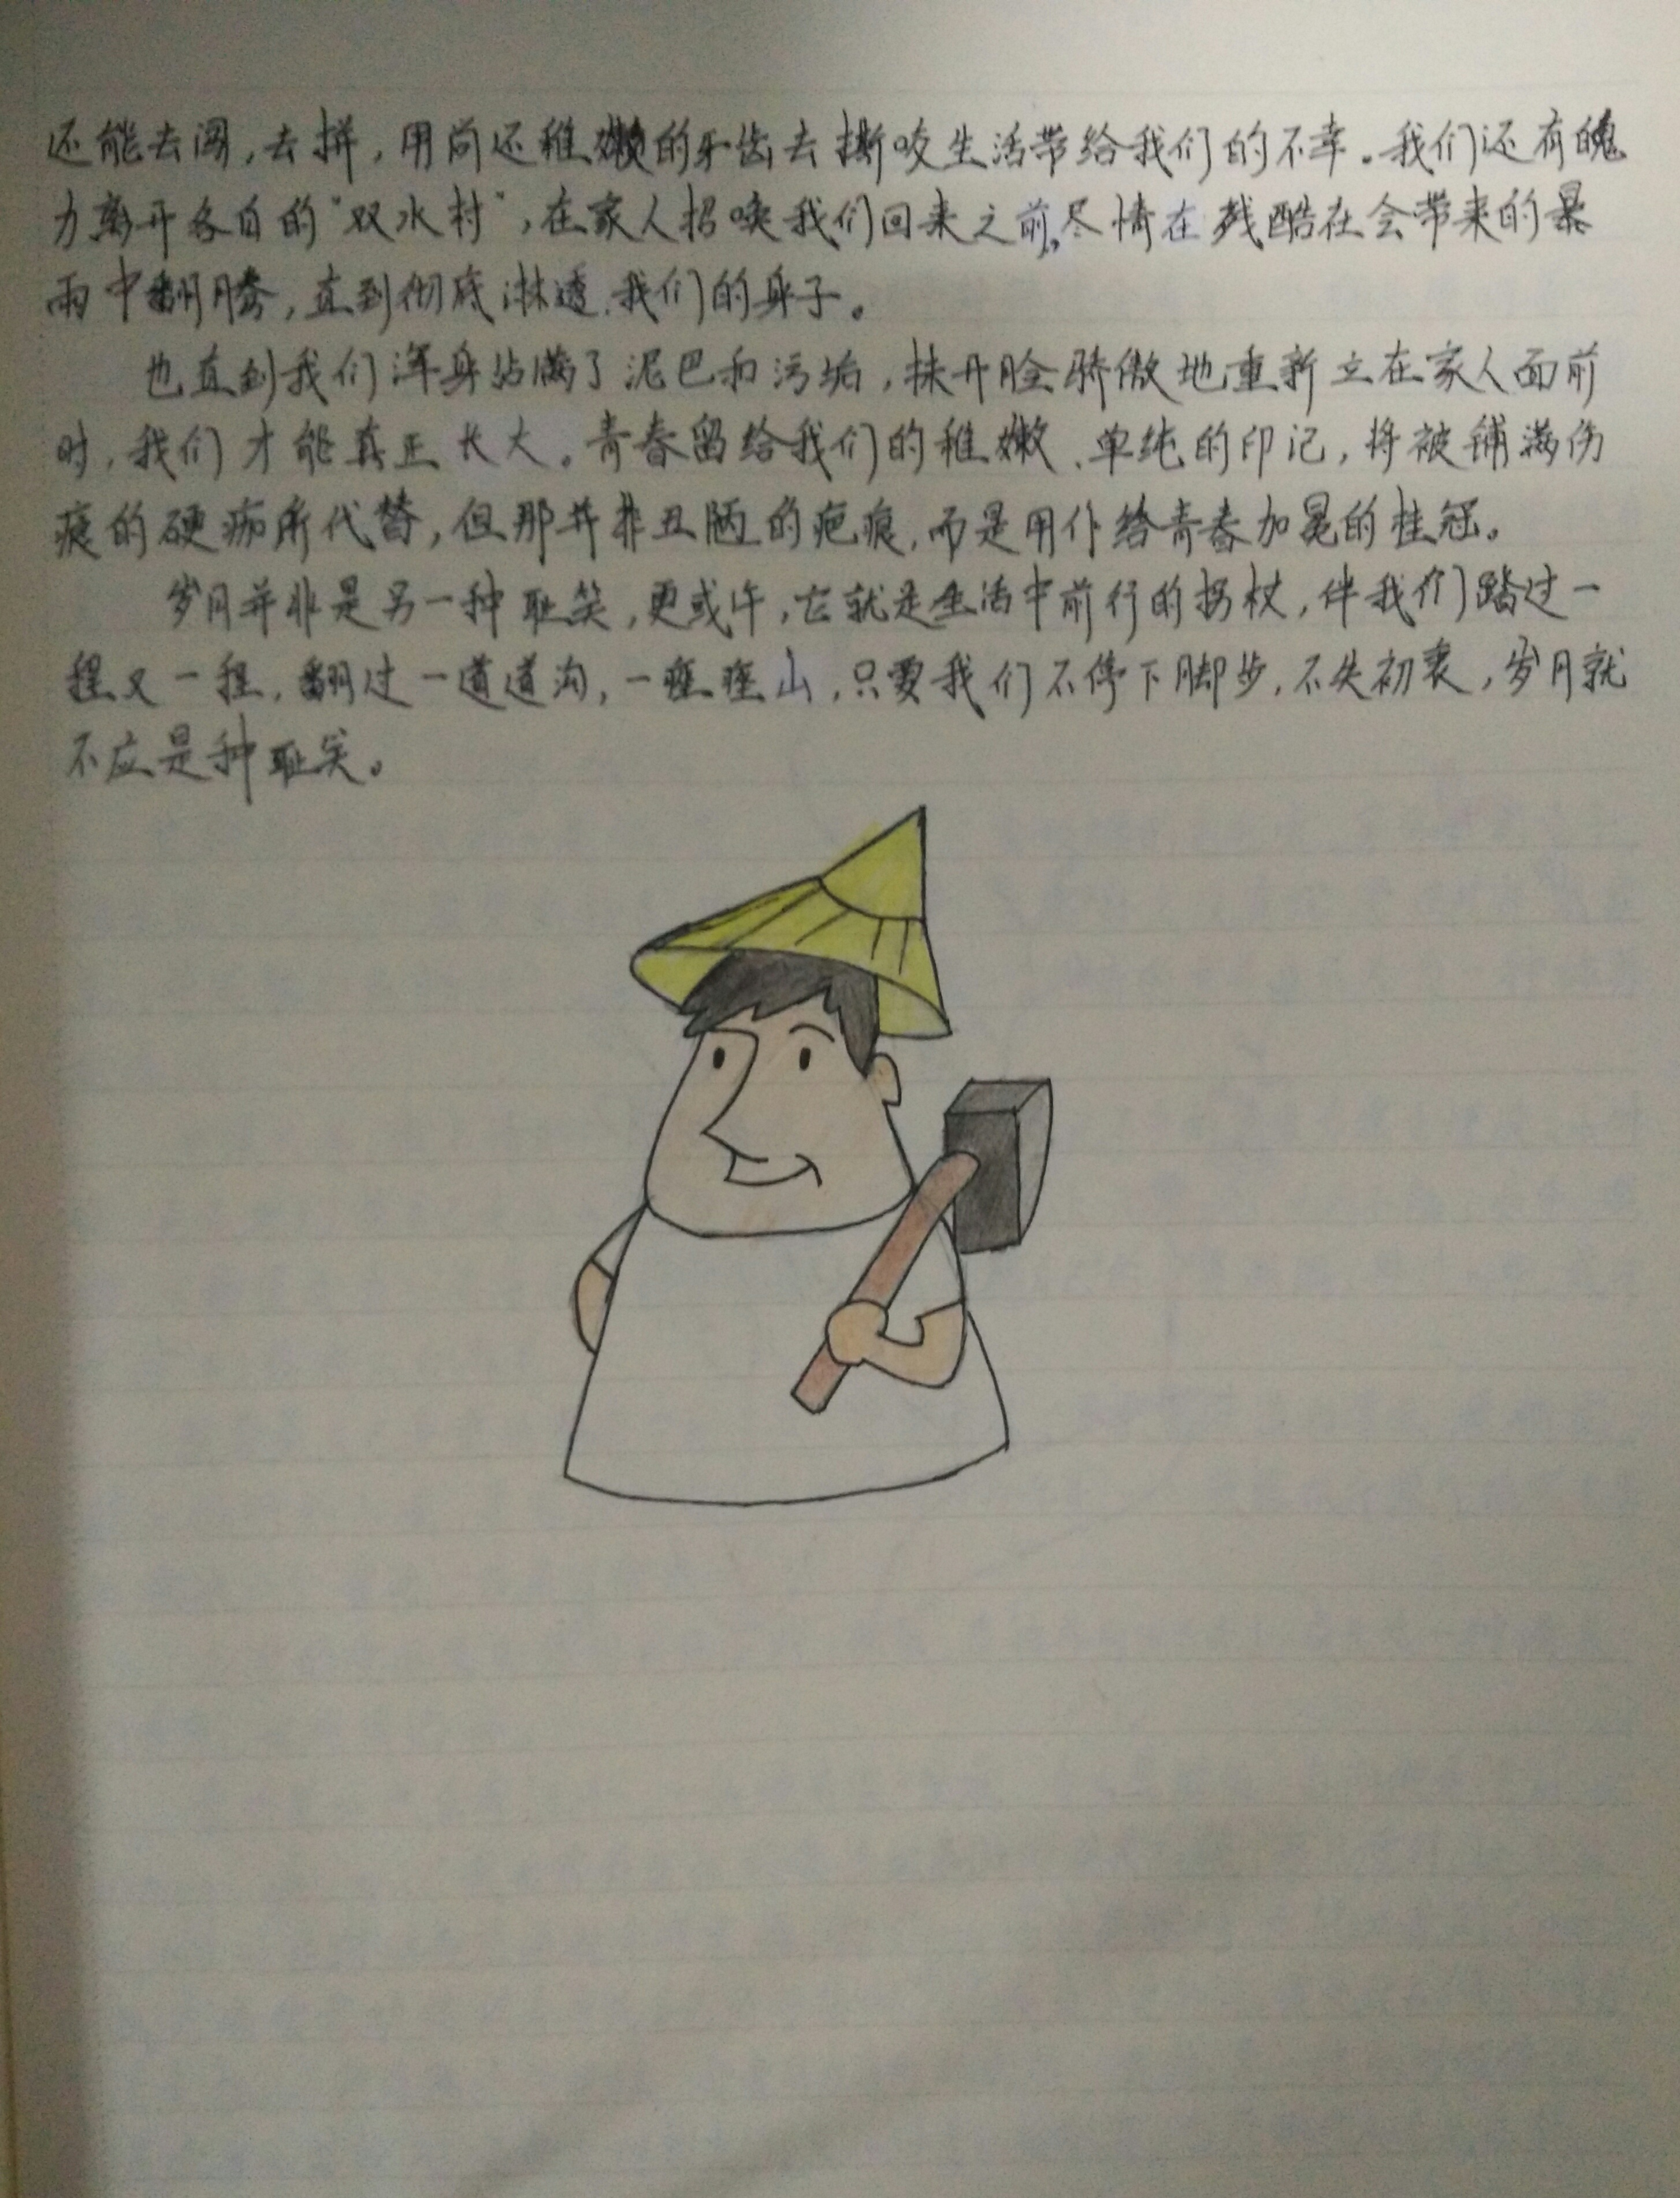 还能去闯，去拼，用尚还稚嫩的牙齿去撕咬生活带给我们的不幸。我们还有魄
力离开各自的“双水村”，在家人招唤我们回来之前，尽情在残酷在会带来的暴
雨中翻腾，直到彻底淋透我们的身子。
也直到我们浑身沾满了泥巴和污垢，抹开脸骄傲地重新立在家人面前
时，我们才能真正长大。青春留给我们的稚嫩、单纯的印记，将被铺满伤
痕的硬痂所代替，但那并非丑陋的疤痕，而是用作给青春加冕的桂冠。
岁月并非是另一种耻笑，更或许，它就是生活中前行的拐杖，伴我们踏过一
程又一程，翻过一道道沟，一座座山，只要我们不停下脚步，不失初衷，岁月就
不应是种耻笑。